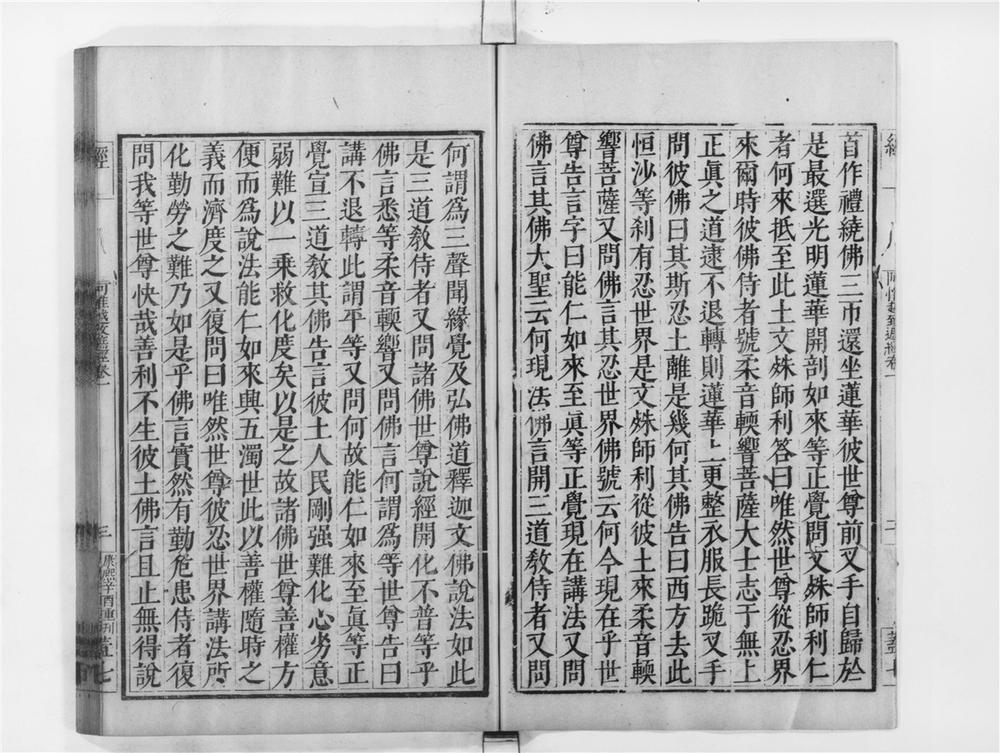 首作禮繞佛三帀還坐蓮華彼世尊前叉手自歸於
是最選光明蓮華開剖如來等正覺問文殊師利仁
者何來抵至此土文殊師利答曰唯然世尊從忍界
來爾時彼佛侍者號柔音輭響菩薩大士志于無上
正眞之道逮不退轉則蓮華上更整衣服長跪叉手
問彼佛曰其斯忍土離是幾何其佛告曰西方去此
恒沙等刹有忍世界是文殊師利從彼土來柔音輭
響菩薩又問佛言其忍世界佛號云何今現在乎世
尊告言字曰能仁如來至眞等正覺現在講法又問
佛言其佛大聖云何現法佛言開三道教侍者又問
何謂爲三聲聞緣覺及弘佛道釋迦文佛說法如此
是三道教侍者又問諸佛世尊說經開化不普等乎
佛言悉等柔音輭響又問佛言何謂爲等世尊告曰
講不退轉此謂平等又問何故能仁如來至眞等正
覺宣三道教其佛告言彼土人民剛强難化心劣意
弱難以一乘救化度矣以是之故諸佛世尊善權方
便而爲說法能仁如來興五濁世此以善權隨時之
義而濟度之又復問曰唯然世尊彼忍世界講法所
化勤勞之難乃如是乎佛言實然有勤危患侍者復
問我等世尊快哉善利不生彼土佛言且止無得說
經 一 八
三
康熙辛酉重刊